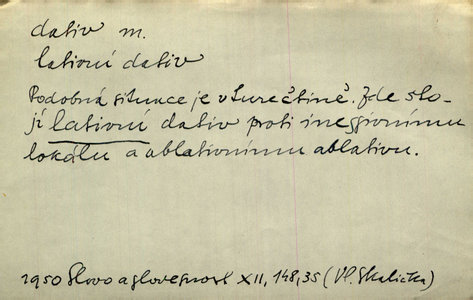 dativ m.
lativní dativ
Podobná situace je v turečtině. Zde sto-
jí lativní dativ proti inegivnímu
lokálu a ablativnímu ablativu.
1950 Slovo a slovesnost XII, 148, 35 (Vl. Skalička)